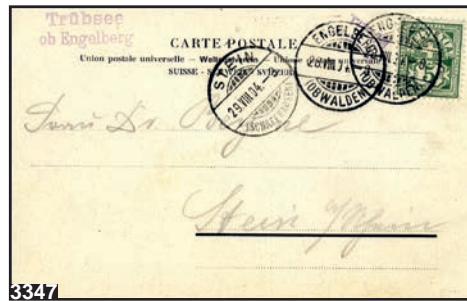 Trübsee
ob Engelberg
CARTE POSTALE
Union postale universelle — Weltpostverein — Unione postale universale
SUISSE - SCHWEIZ - SVIZZERA
ENGELBERG
28.VIII.04.
(OBWALDEN)
STEIN
29.VIII.04.
(SCHAFFHAUSEN)
Frau Dr.
Stein a/Rhein
3347